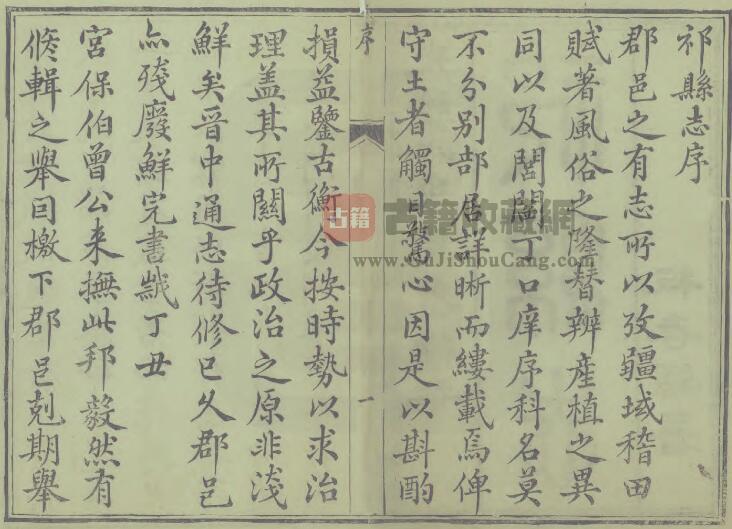 祁縣志序
郡邑之有志所以攷疆域稽田
賦著風俗之隆替辨產植之異
同以及閭閻丁口庠序科名莫
不分別部居詳晰而縷載焉俾
守土者觸目驚心因是以斟酌
序
一
損益鑒古衡今按時勢以求治
理盖其所關乎政治之原非淺
鮮矣晉中通志待修已久郡邑
亦殘廢鮮完書歲丁丑
宮保伯曾公来撫此邦毅然有
脩輯之舉囙檄下郡邑剋期舉
古籍
古籍收藏網
www.GuJiShouCang.com